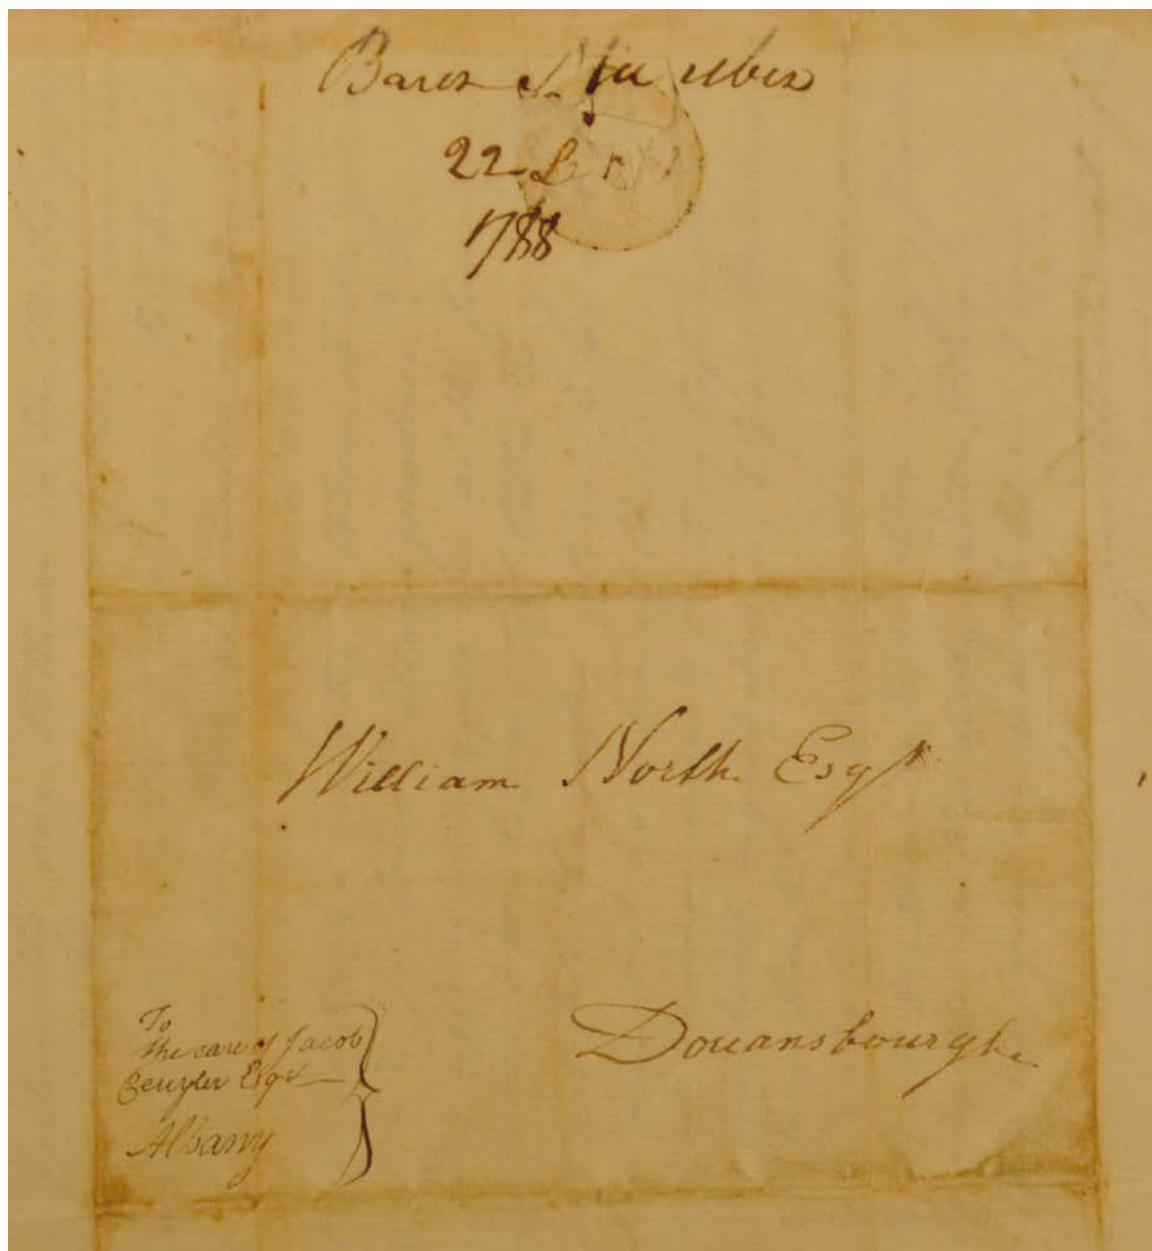 Baron Steuben
22
1788
William North Esqr
To
the care of Jacob
Cuyler Esqr
Albany
Douansbourgh